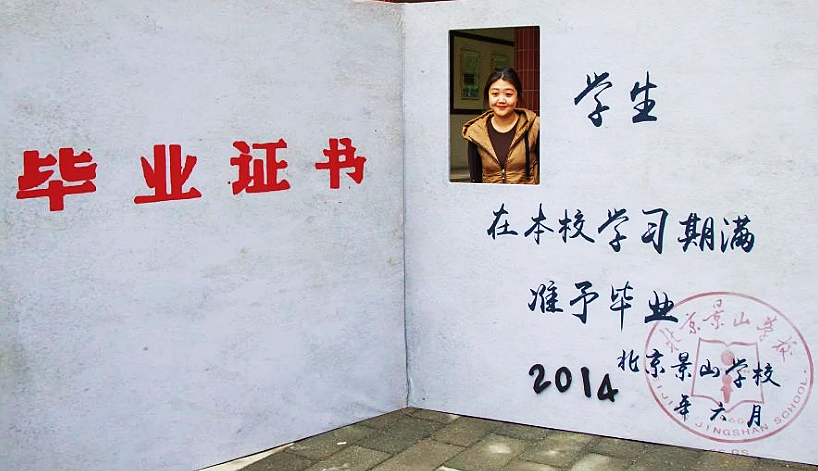 毕业证书
学生
在本校学习期满
准予毕业
北京景山学校
2014年六月
北京景山学校
JINGSHAN SCHOOL